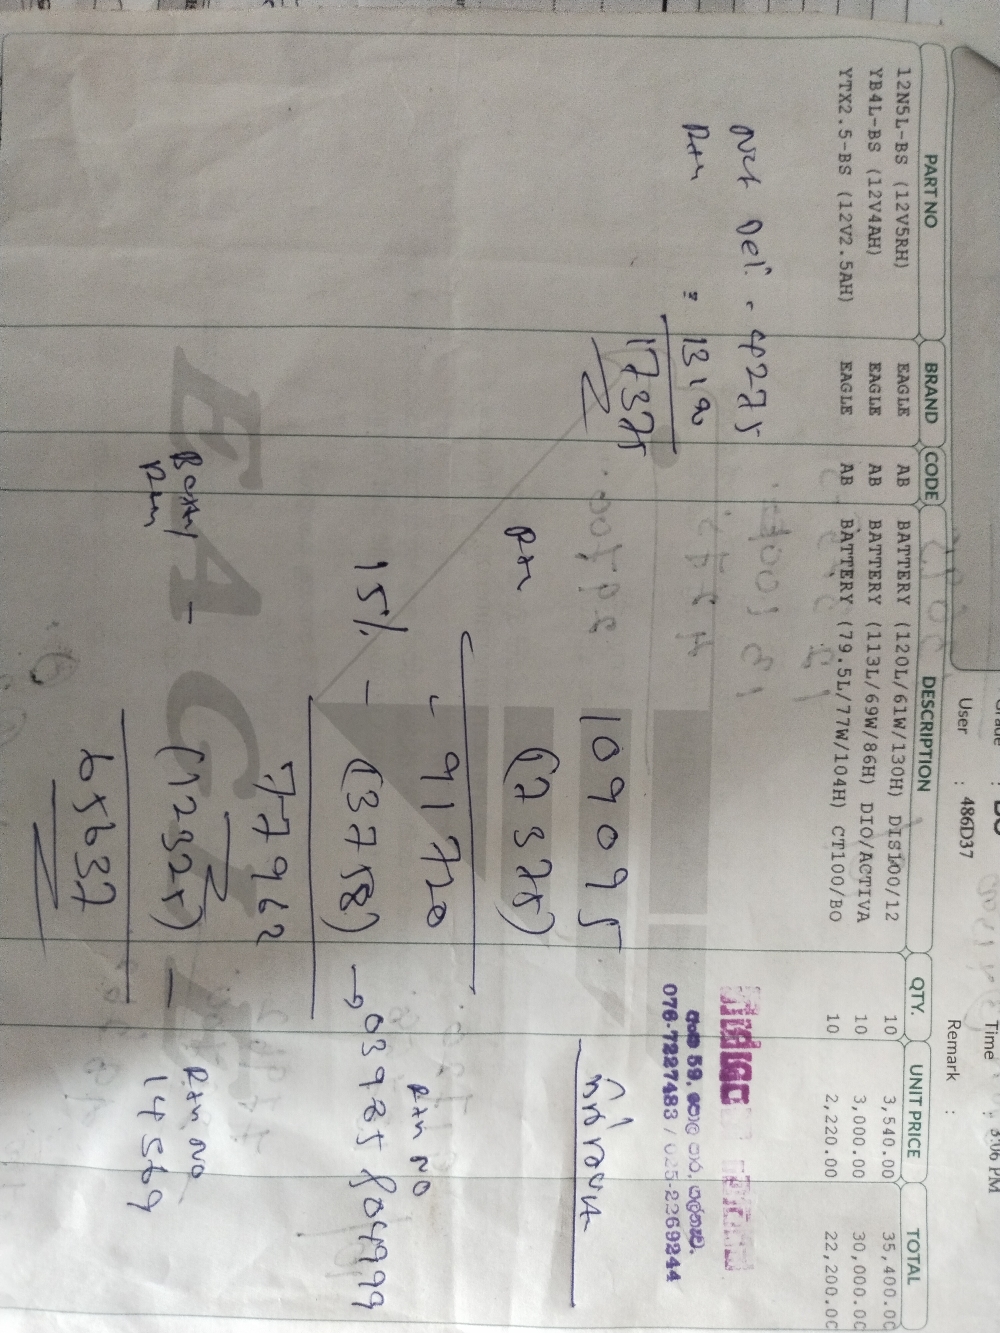 Time : 3:06 PM
User : 486D37
Remark :
PART NO BRAND CODE DESCRIPTION QTY. UNIT PRICE TOTAL
12N5L-BS (12V5RH) EAGLE AB BATTERY (120L/61W/130H) DIS100/12 10 3,540.00 35,400.00
YB4L-BS (12V4AH) EAGLE AB BATTERY (113L/69W/86H) DIO/ACTIVA 10 3,000.00 30,000.00
YTX2.5-BS (12V2.5AH) EAGLE AB BATTERY (79.5L/77W/104H) CT100/BO 10 2,220.00 22,200.00
Not Del. - 4275
Rtn = 1310
17375
076-7227483 / 025-2269244
109095
Rtn (17375)
91720
15% - (13758) → 039785 / 044999
Rtn NO
77962
Battery Rtn - (12325) -
Rtn NO
14569
65637
EAGLE